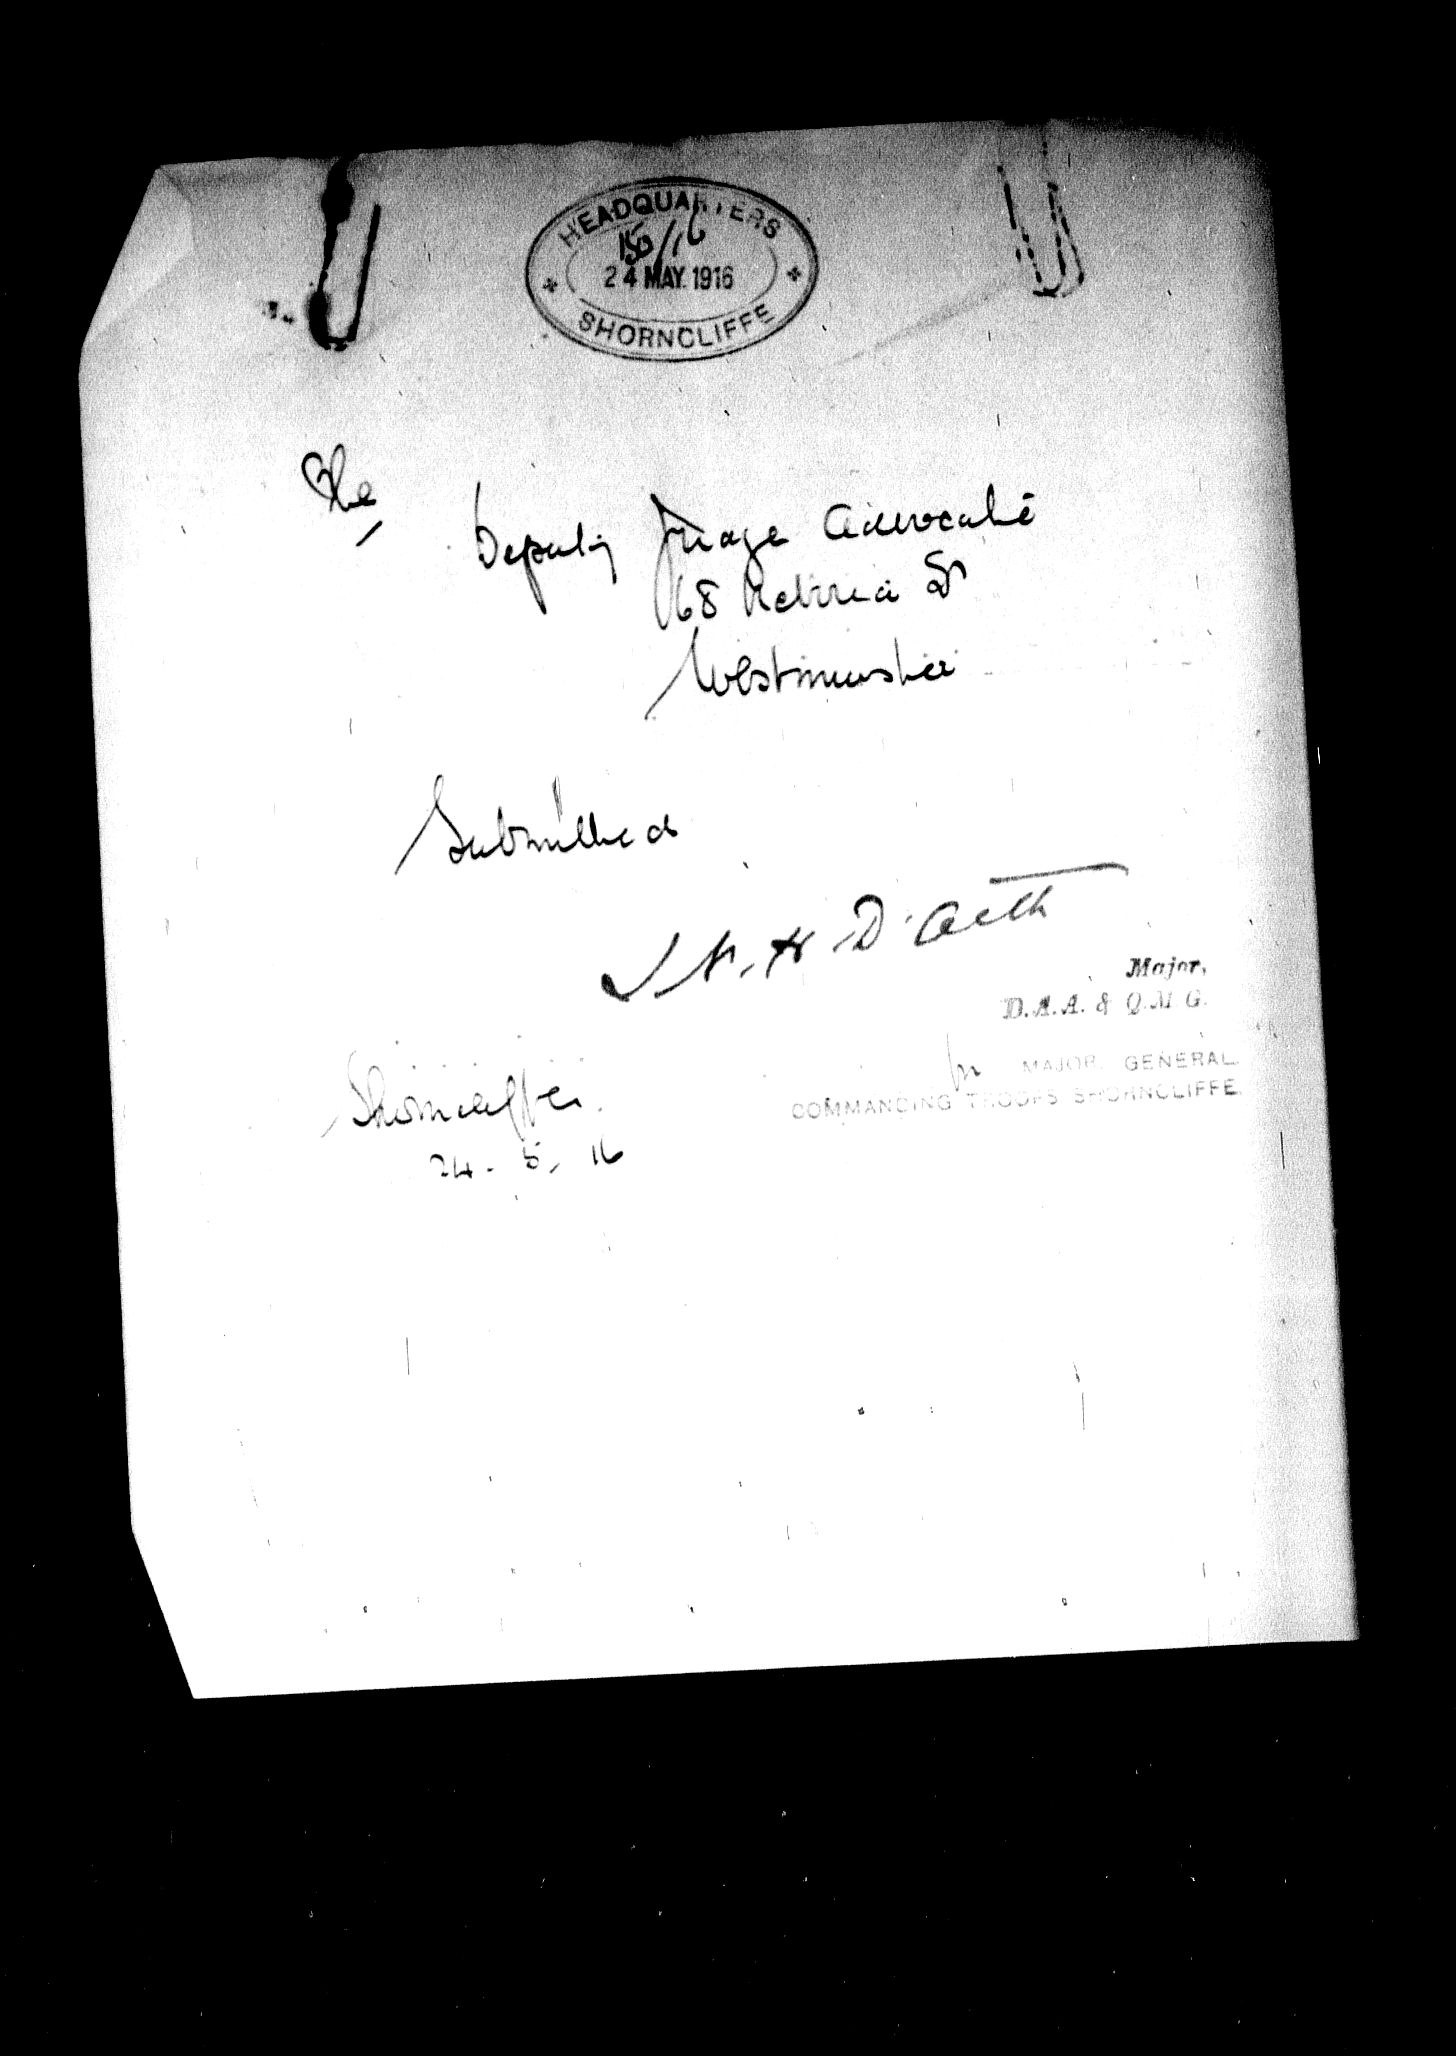 HEADQUARTERS
150/16
24 MAY. 1916
SHORNCLIFFE
The
Deputy Judge Advocate
68 Victoria St
Westminster
Submitted
D'Aeth
Major,
D.A.A. & Q.M.G.
for MAJOR. GENERAL.
COMMANDING TROOPS SHORNCLIFFE.
Shorncliffe.
24. 5. 16